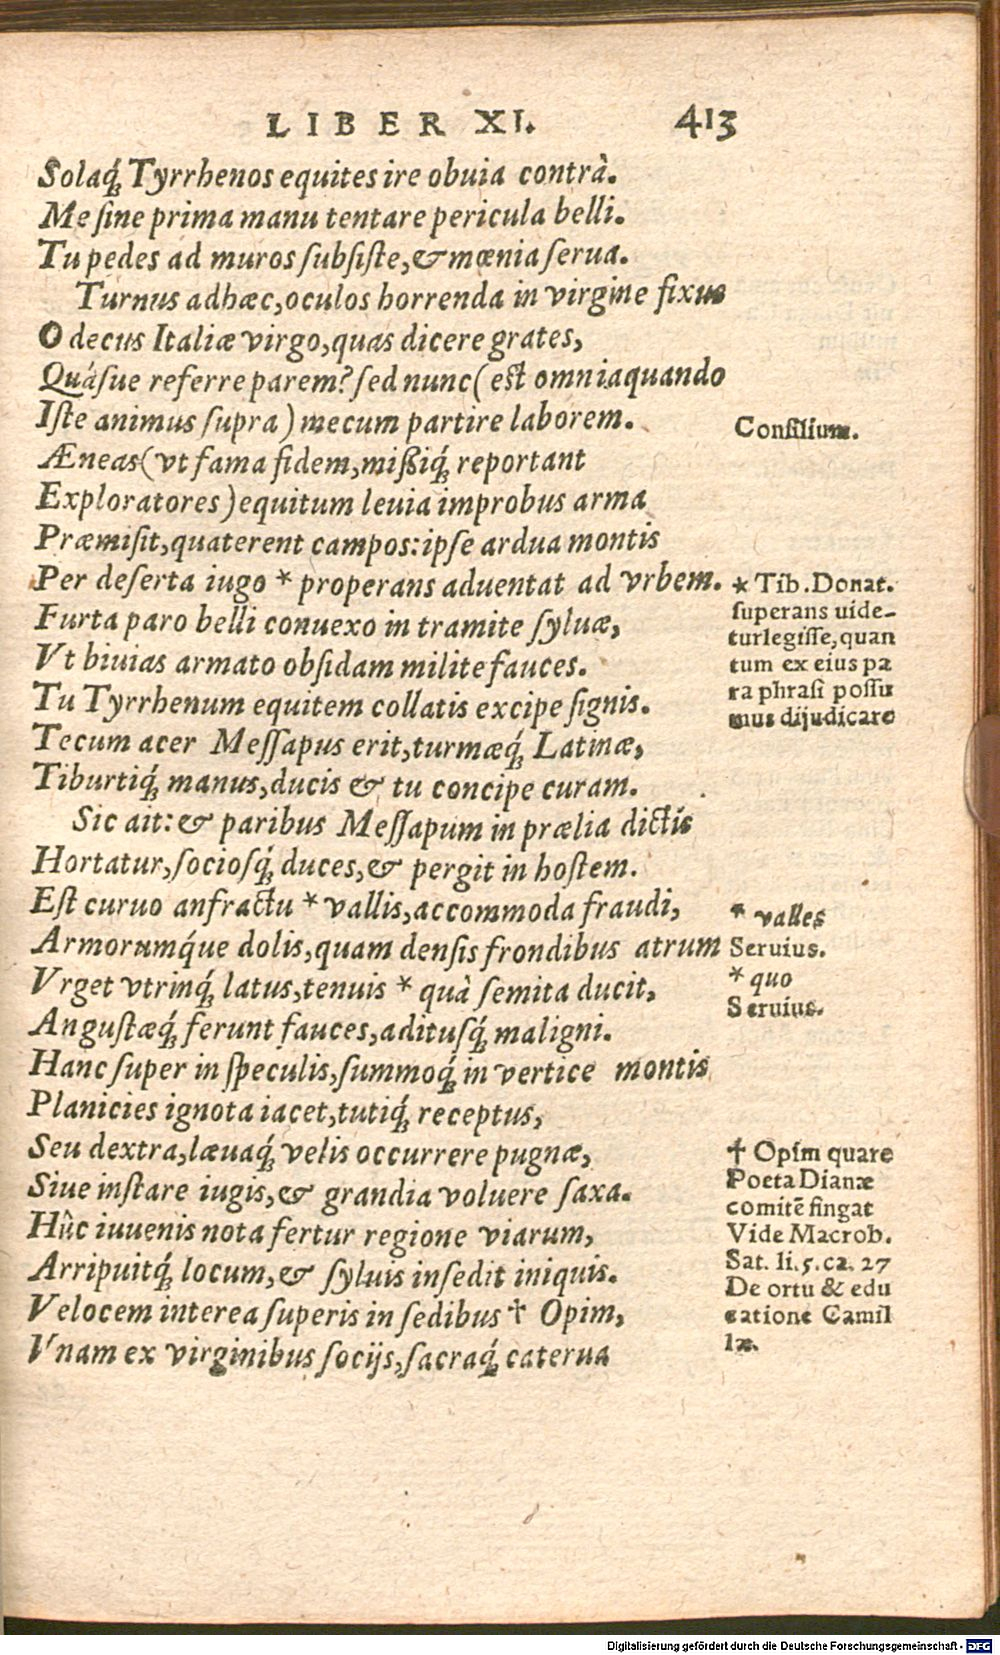 LIBER XI. 413
Solaq́; Tyrrhenos equites ire obuia contrà.
Me ſine prima manu tentare pericula belli.
Tu pedes ad muros ſubſiſte, & mœnia ſerua.
Turnus ad hæc, oculos horrenda in virgine fixus
O decus Italiæ virgo, quas dicere grates,
Quáſue referre parem? ſed nunc (eſt omnia quando
Iſte animus ſupra) mecum partire laborem.
Consilium.
Æneas (vt fama fidem, mißiq́; reportant
Exploratores) equitum leuia improbus arma
Præmiſit, quaterent campos: ipſe ardua montis
Per deſerta iugo * properans aduentat ad vrbem.
Furta paro belli conuexo in tramite ſyluæ,
Vt biuias armato obſidam milite fauces.
Tu Tyrrhenum equitem collatis excipe ſignis.
* Tib. Donat.
superans uide-
tur legiſſe, quan
tum ex eius pa
ra phraſi poſſu
mus dijudicare
Tecum acer Meſſapus erit, turmæq́; Latinæ,
Tiburtiq́; manus, ducis & tu concipe curam.
Sic ait: & paribus Meſſapum in prælia dictis
Hortatur, ſocioſq́; duces, & pergit in hoſtem.
Eſt curuo anfractu * vallis, accommoda fraudi,
Armorumq́ue dolis, quam denſis frondibus atrum
Vrget vtrinq́; latus, tenuis * quà ſemita ducit,
Anguſtæq́; ferunt fauces, adituſq́; maligni.
* valles
Seruius.
* quo
Seruius.
Hanc ſuper in ſpeculis, ſummoq́; in vertice montis
Planicies ignota iacet, tutiq́; receptus,
Seu dextra, læuaq́; velis occurrere pugnæ,
Siue inſtare iugis, & grandia voluere ſaxa.
Hûc iuuenis nota fertur regione viarum,
Arripuitq́; locum, & ſyluis inſedit iniquis.
Velocem interea ſuperis in ſedibus † Opim,
Vnam ex virginibus ſocijs, ſacraq́; caterua
† Opim quare
Poeta Dianæ
comitē fingat
Vide Macrob.
Sat. li. 5. ca. 27
De ortu & edu
catione Camil
læ.
Digitalisierung gefördert durch die Deutsche Forschungsgemeinschaft - DFG